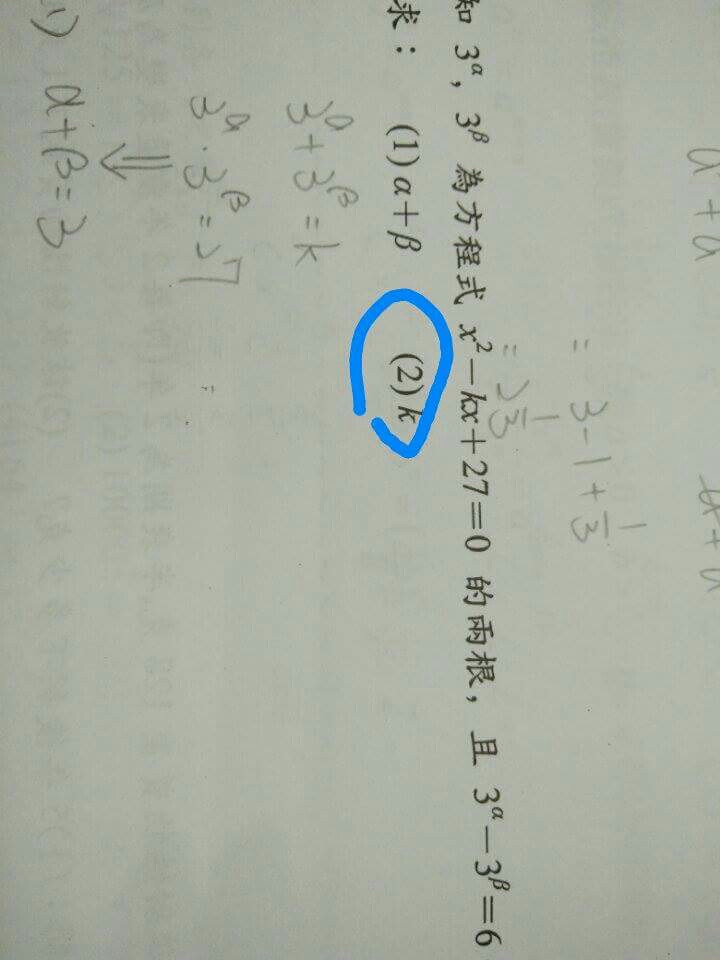 知 3^α, 3^β 為方程式 x²-kx+27=0 的兩根，且 3^α-3^β=6
求： (1) α+β (2) k
= 3-1+1/3
= 2 1/3
3^α+3^β=k
3^α·3^β=27
⇓
α+β=3